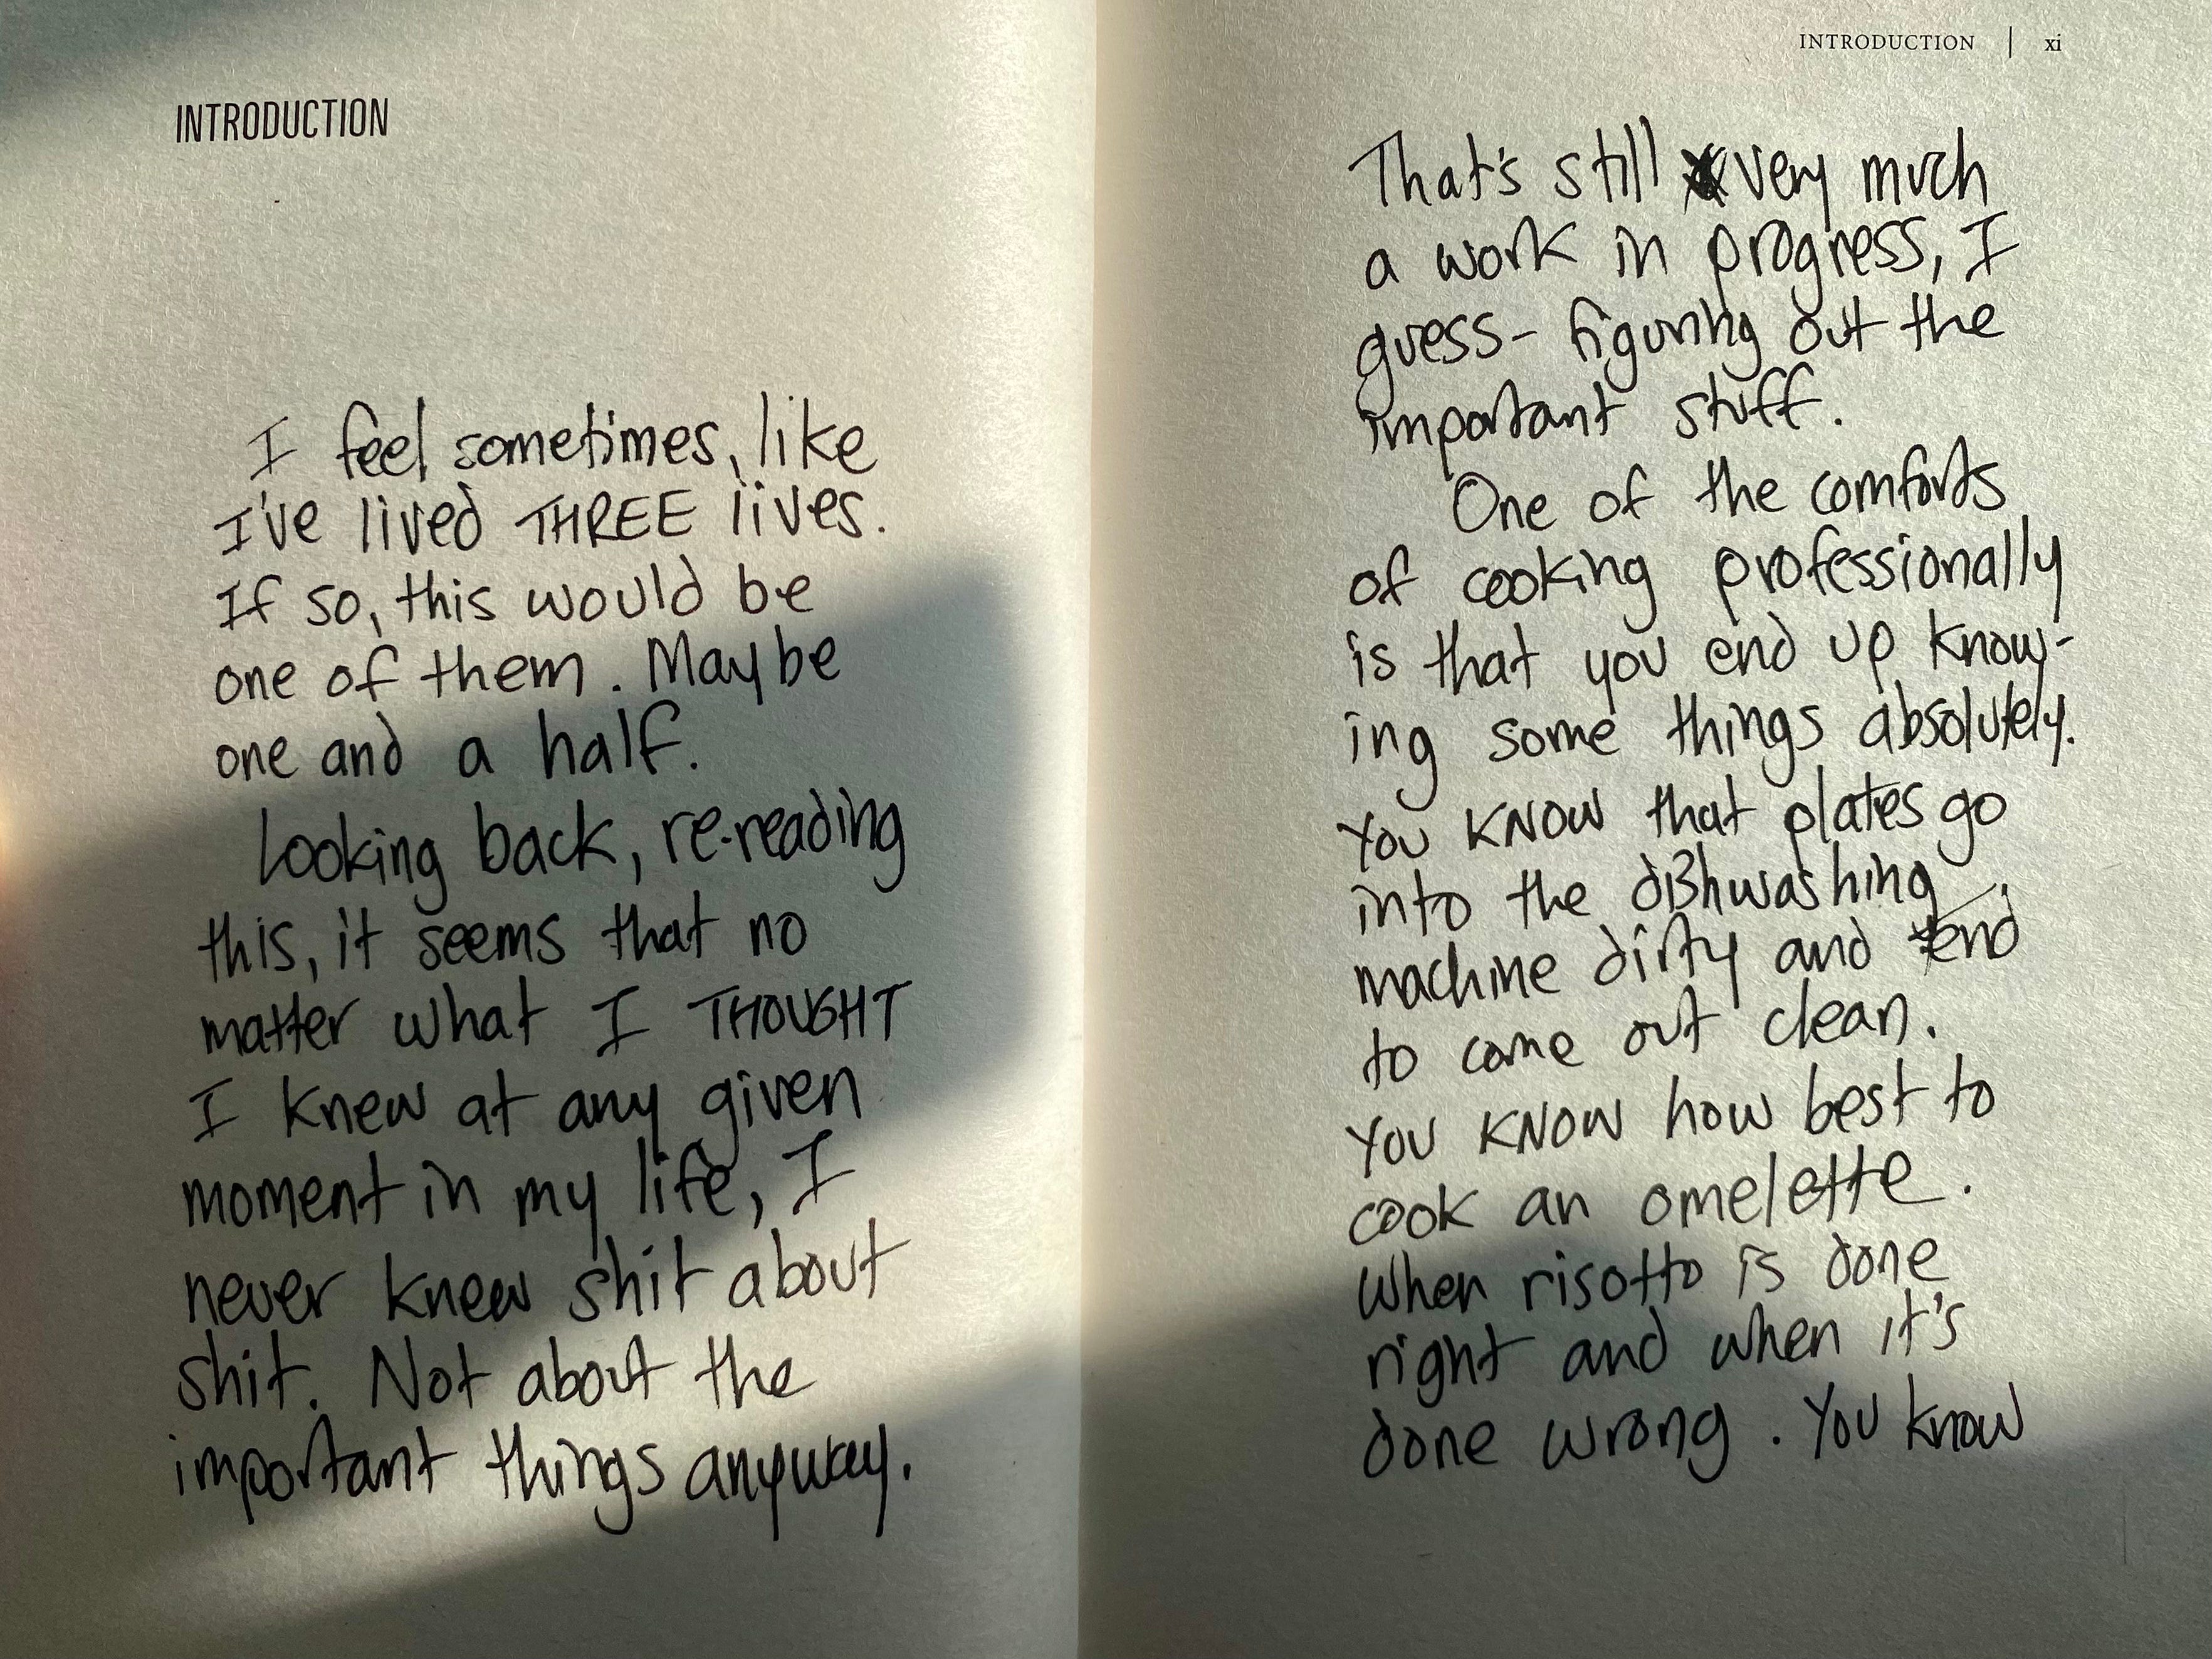 INTRODUCTION
I feel sometimes, like
I've lived THREE lives.
If so, this would be
one of them. Maybe
one and a half.
Looking back, re-reading
this, it seems that no
matter what I THOUGHT
I knew at any given
moment in my life, I
never knew shit about
shit. Not about the
important things anyway.
INTRODUCTION | xi
That's still very much
a work in progress, I
guess - figuring out the
important stuff.
One of the comforts
of cooking professionally
is that you end up know-
ing some things absolutely.
You KNOW that plates go
into the dishwashing
machine dirty and tend
to come out clean.
You KNOW how best to
cook an omelette.
When risotto is done
right and when it's
done wrong. You know